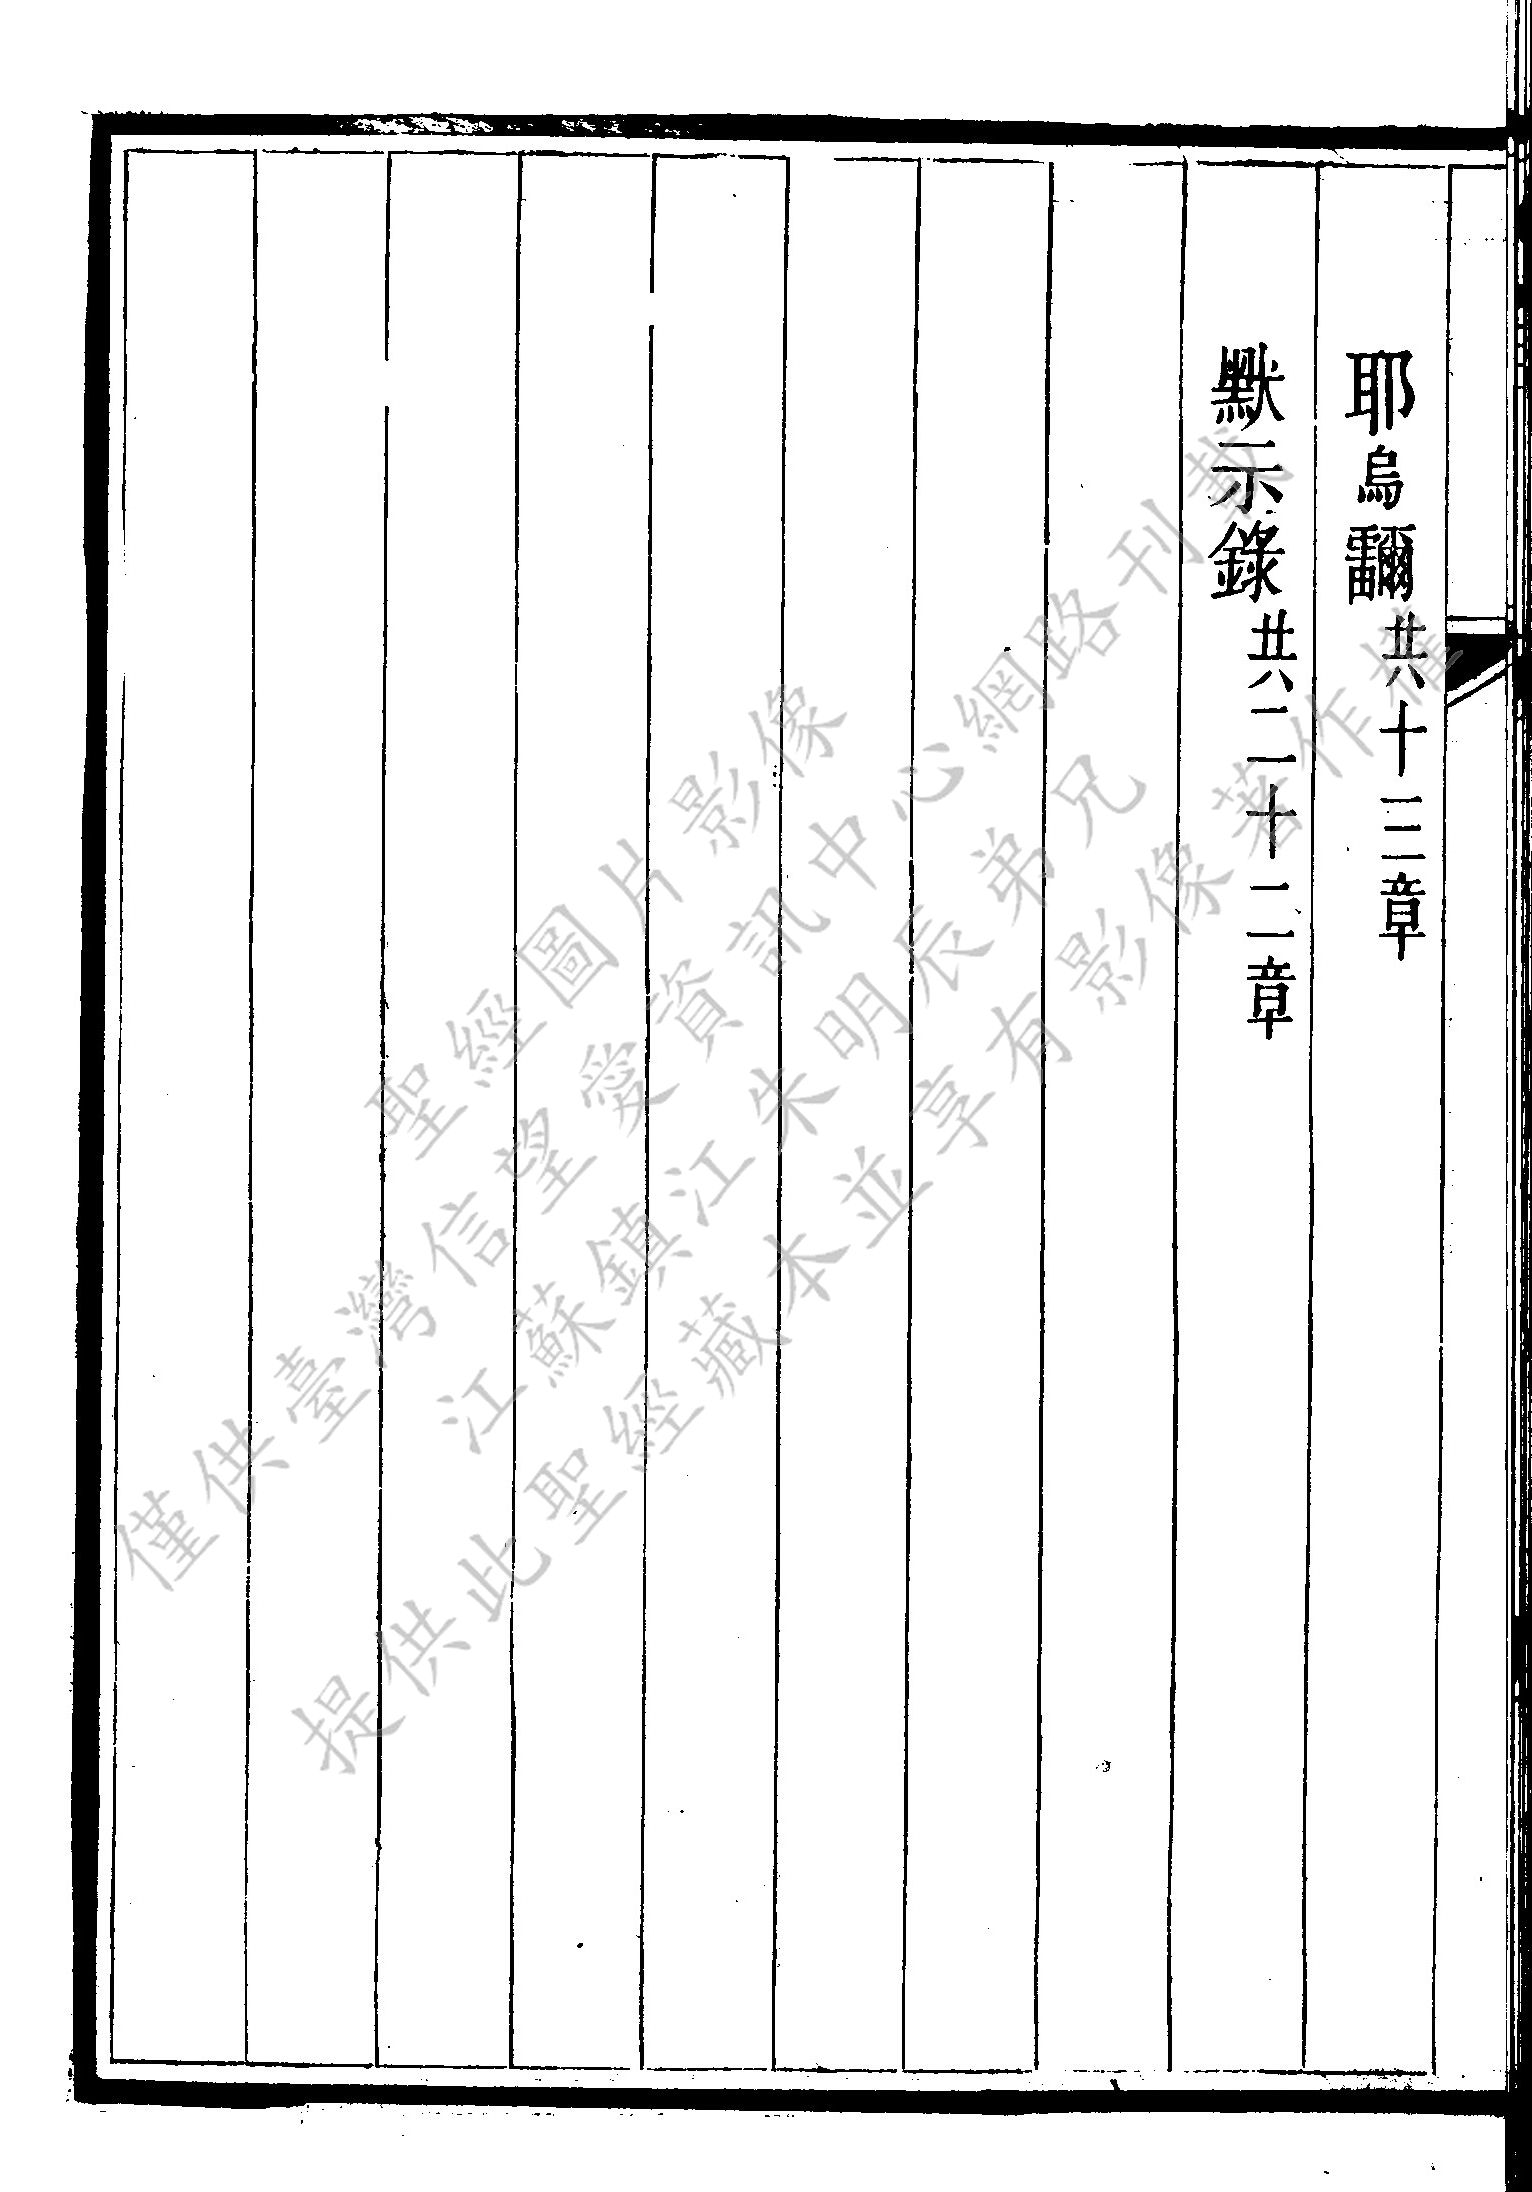 耶烏⿰雷爾共十三章
默示錄共二十二章
聖經圖片影像
僅供臺灣信望愛資訊中心網路刊載
江蘇鎮江朱明辰弟兄
提供此聖經藏本並享有影像著作權